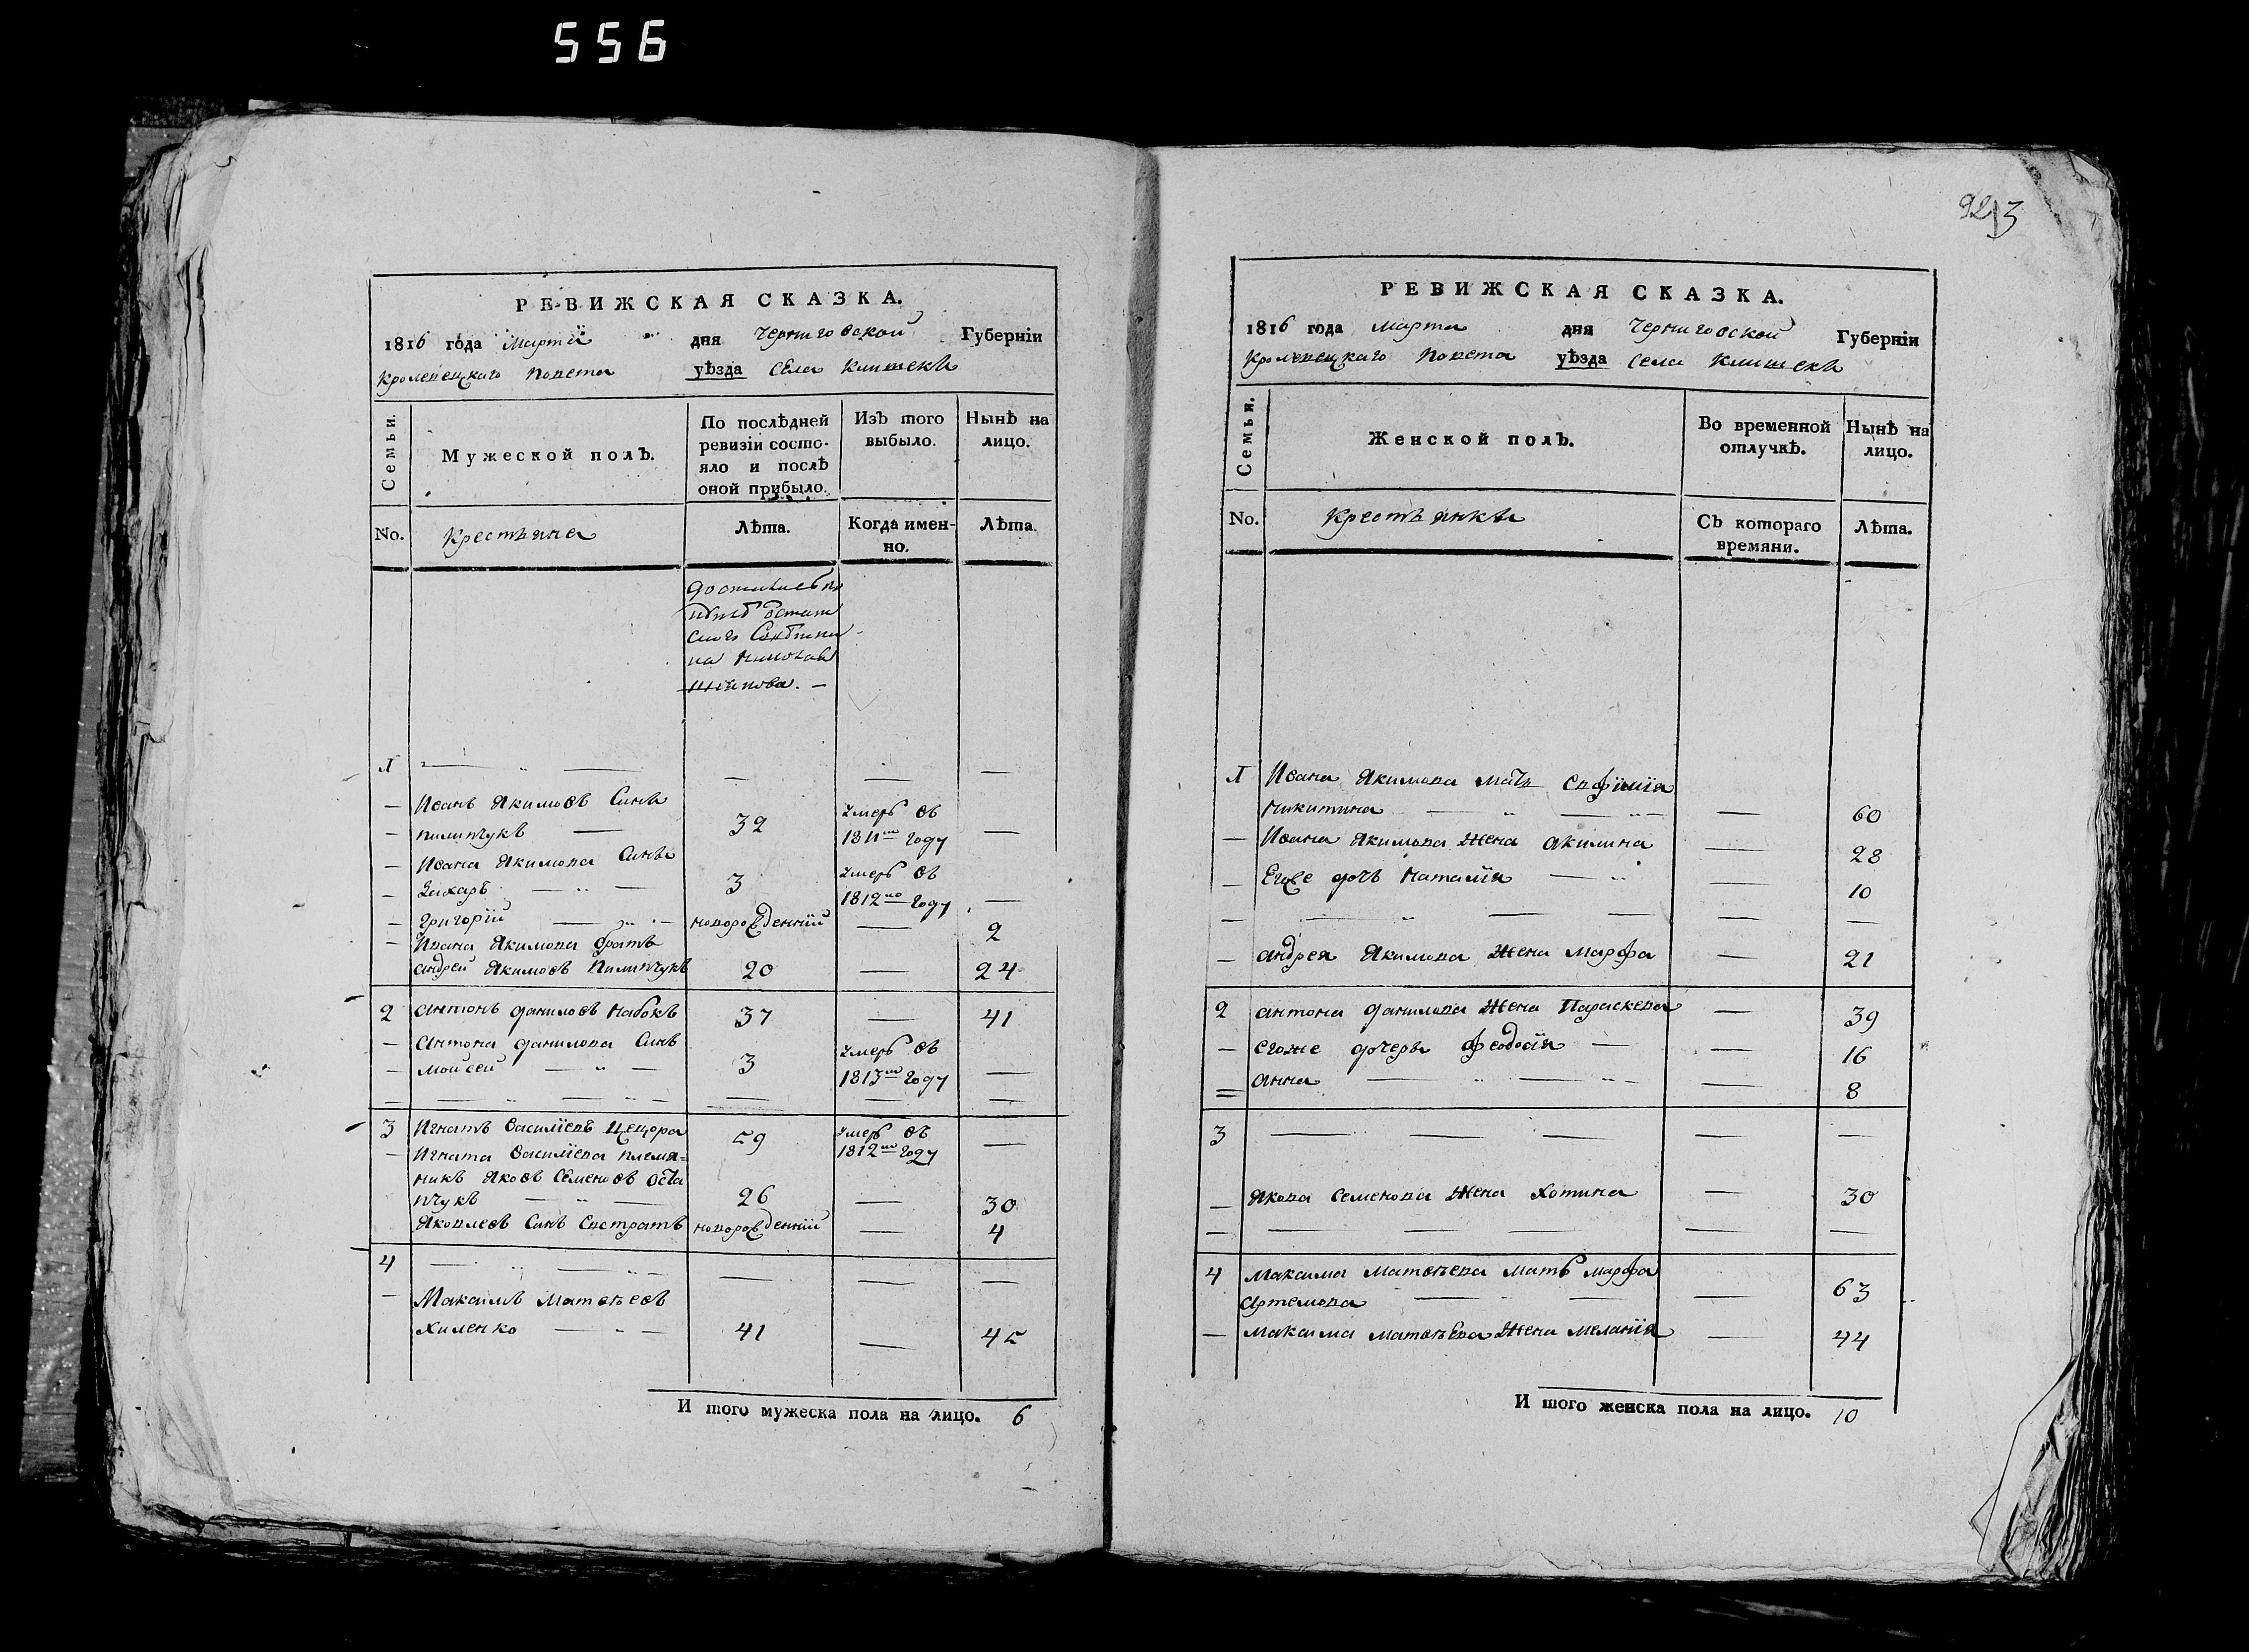 556
9213
РЕВИЖСКАЯ СКАЗКА.
1816 года Марта дня Черниговской Губерніи
Кролевецкаго Повета уѣзда Села Клишекъ
Семьи.
Мужеской полъ.
По послѣдней
ревизіи состо-
яло и послѣ
оной прибыло.
Изъ того
выбыло.
Нынѣ на
лицо.
No.
Крестьяне
Лѣта.
Когда имен-
но.
Лѣта.
1 — — — — —
— Иванъ Якимовъ Синъ
— пилипчукъ — 32 Умеръ въ 1811м Году —
— Ивана Якимова Синъ
— Захаръ — 3 Умеръ въ 1812мо Году —
— Григорій — новорожденній — 2
— Ивана Якимова братъ
андрей Якимовъ Пилипчукъ 20 — 24
2 антонъ даниловъ Набокъ 37 — 41
— Антона данилова Синъ
— Мойсей — 3 Умеръ въ 1813м Году —
— — — — —
3 Игнатъ Василіевъ Цецора 59 Умеръ въ 1812м Году —
— Игната Василіева племя=
никъ Яковъ Семеновъ Оста
пчукъ — 26 — 30
Яковлевъ Синъ Евстратъ новорожденній — 4
4 — — — — —
— Максимъ Матвѣевъ
Хиленко — 41 — 45
И того мужеска пола на лицо. 6
РЕВИЖСКАЯ СКАЗКА.
1816 года Марта дня Черниговской Губерніи
Кролевецкаго Повета уѣзда Села Клишекъ
Семьи.
Женской полъ.
Во временной
отлучкѣ.
Нынѣ на
лицо.
No.
Крестьянки
Съ котораго
времяни.
Лѣта.
1 Ивана Якимова мать Евфимія
Никитина — — 60
— Ивана Якимова Жена акилина — 28
— Егове дочъ Наталія — — 10
— — — — —
— андрея Якимова Жена Марфа — 21
2 антона данилова Жена Параскева — 39
— егоже дочерь феодосія — — 16
= анна — — 8
3 — — — — —
— Якова Семенова Жена Хотина — 30
— — — — —
4 Максима Матвѣева мать марфа
артемова — — 63
— Максима матвѣева Жена меланія — 44
И того женска пола на лицо. 10